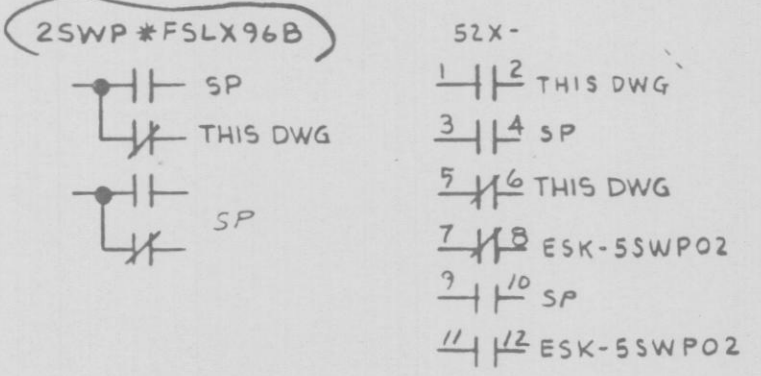 2SWP*FSLX96B
SP
THIS DWG
SP
52X-
1 2 THIS DWG
3 4 SP
5 6 THIS DWG
7 8 ESK-5SWP02
9 10 SP
11 12 ESK-5SWP02